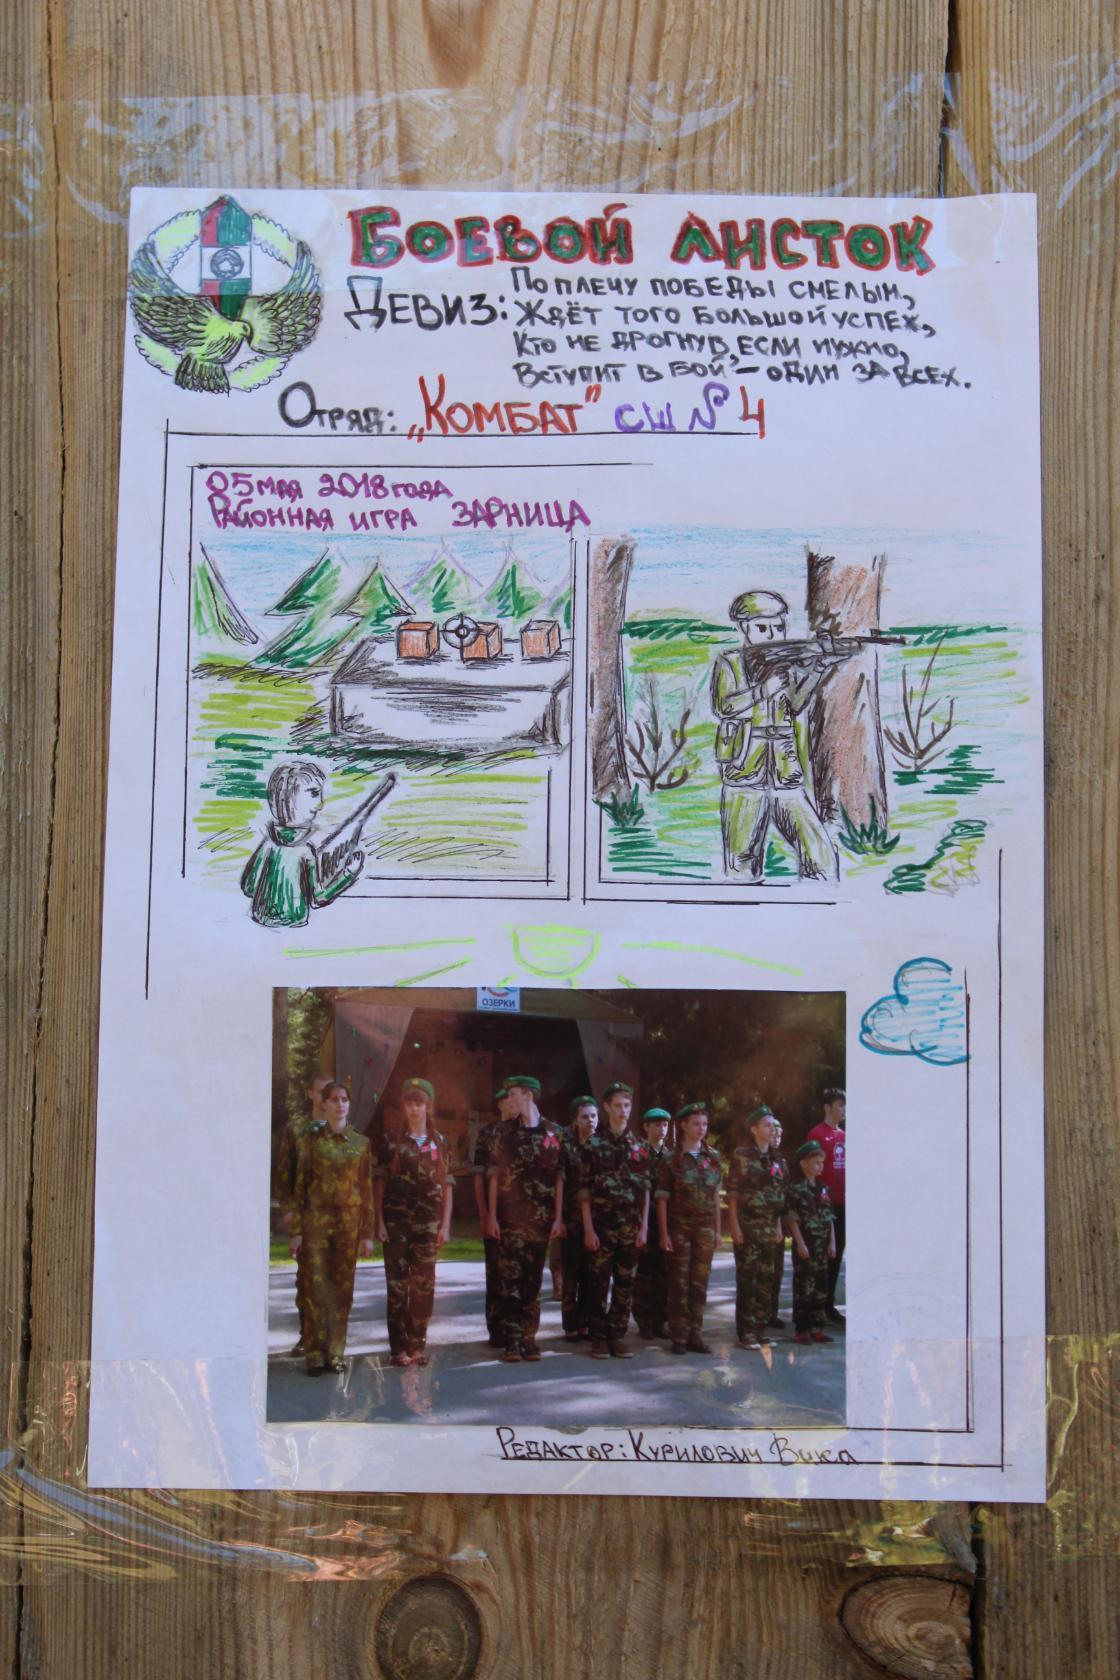 БОЕВОЙ ЛИСТОК
ДЕВИЗ: ПО ПЛЕЧУ ПОБЕДЫ СМЕЛЫМ,
ЖДЁТ ТОГО БОЛЬШОЙ УСПЕХ,
КТО НЕ ДРОГНУВ, ЕСЛИ НУЖНО,
ВСТУПИТ В БОЙ – ОДИН ЗА ВСЕХ.
ОТРЯД: „КОМБАТ" СШ №4
05 мая 2018 года
РАЙОННАЯ ИГРА ЗАРНИЦА
ОЗЕРКИ
РЕДАКТОР: КУРИЛОВИЧ Вика